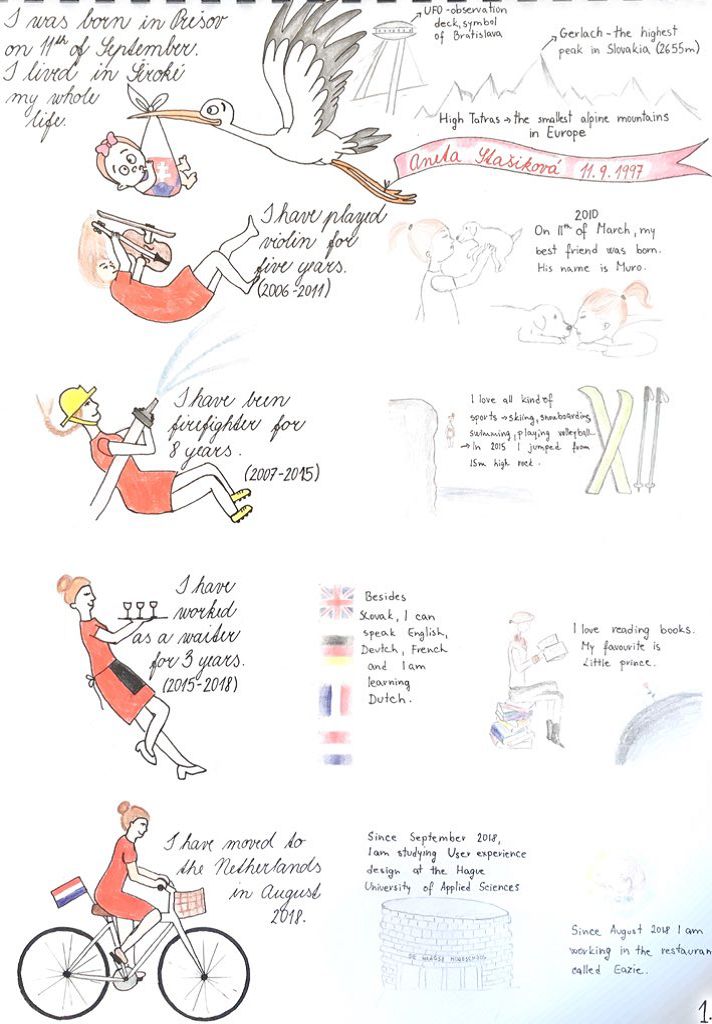 I was born in Prešov
on 11th of September.
I lived in Široké
my whole
life.
UFO-observation
deck, symbol
of Bratislava
Gerlach - the highest
peak in Slovakia (2655m)
High Tatras → the smallest alpine mountains
in Europe
Aneta Stašiková 11.9.1997
I have played
violin for
five years.
(2006-2011)
2010
On 11th of March, my
best friend was born.
His name is Muro.
I have been
firefighter for
8 years.
(2007-2015)
I love all kind of
sports → skiing, snowboarding,
swimming, playing volleyball...
→ In 2015 I jumped from
15m high rock.
I have
worked
as a waiter
for 3 years.
(2015-2018)
Besides
Slovak, I can
speak English,
Deutch, French
and I am
learning
Dutch.
I love reading books.
My favourite is
Little prince.
I have moved to
the Netherlands
in August
2018.
Since September 2018,
I am studying User experience
design at the Hague
University of Applied Sciences
DE HAAGSE HOGESCHOOL
Since August 2018 I am
working in the restauran
called Eazie.
1.